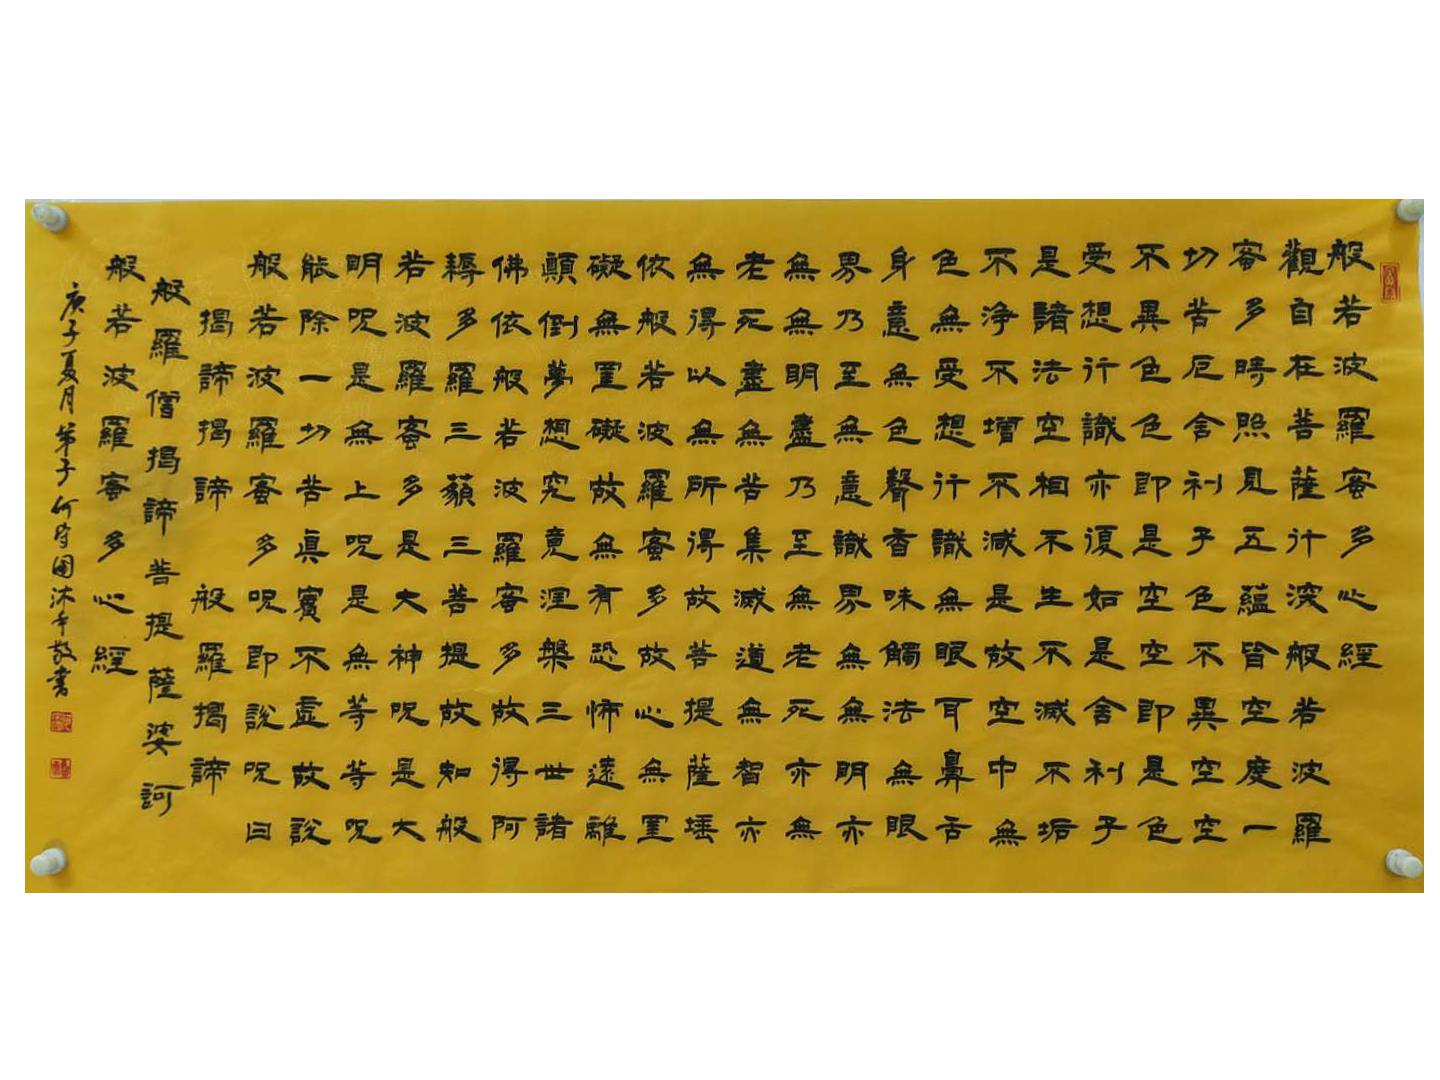 般若波羅蜜多心經
觀自在菩薩行深般若波羅
蜜多時照見五蘊皆空度一
切苦厄舍利子色不異空空
不異色色即是空空即是色
受想行識亦復如是舍利子
是諸法空相不生不滅不垢
不淨不增不減是故空中無
色無受想行識無眼耳鼻舌
身意無色聲香味觸法無眼
界乃至無意識界無無明亦
無無明盡乃至無老死亦無
老死盡無苦集滅道無智亦
無得以無所得故菩提薩埵
依般若波羅蜜多故心無罣
礙無罣礙故無有恐怖遠離
顛倒夢想究竟涅槃三世諸
佛依般若波羅蜜多故得阿
耨多羅三藐三菩提故知般
若波羅蜜多是大神呪是大
明呪是無上呪是無等等呪
能除一切苦真實不虛故說
般若波羅蜜多呪即說呪曰
揭諦揭諦 般羅揭諦
般羅僧揭諦菩提薩婆訶
般若波羅蜜多心經
庚子夏月弟子何守國沐手敬書